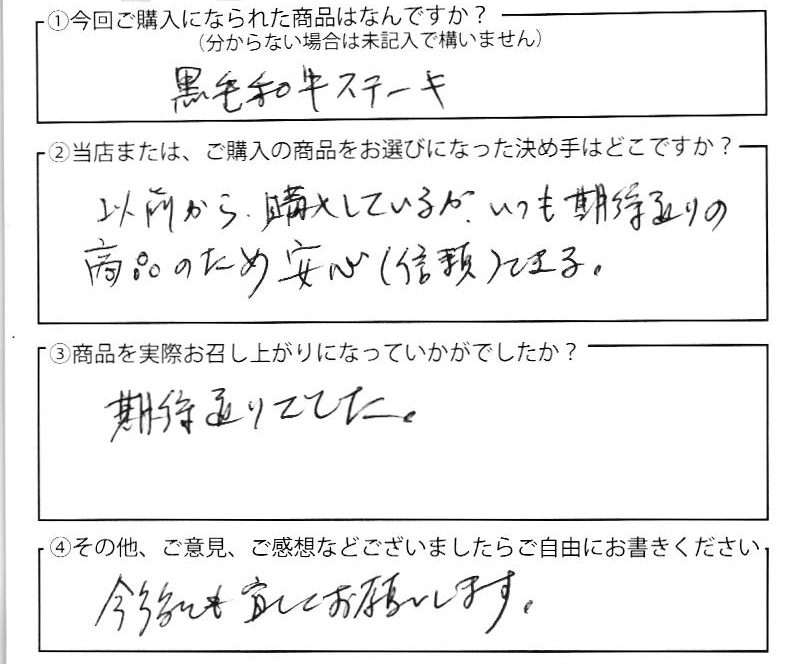 ①今回ご購入になられた商品はなんですか？
（分からない場合は未記入で構いません）
黒毛和牛ステーキ
②当店または、ご購入の商品をお選びになった決め手はどこですか？
以前から、購入しているが、いつも期待通りの
商品のため安心(信頼)できる。
③商品を実際お召し上がりになっていかがでしたか？
期待通りでした。
④その他、ご意見、ご感想などございましたらご自由にお書きください
今後とも宜しくお願いします。